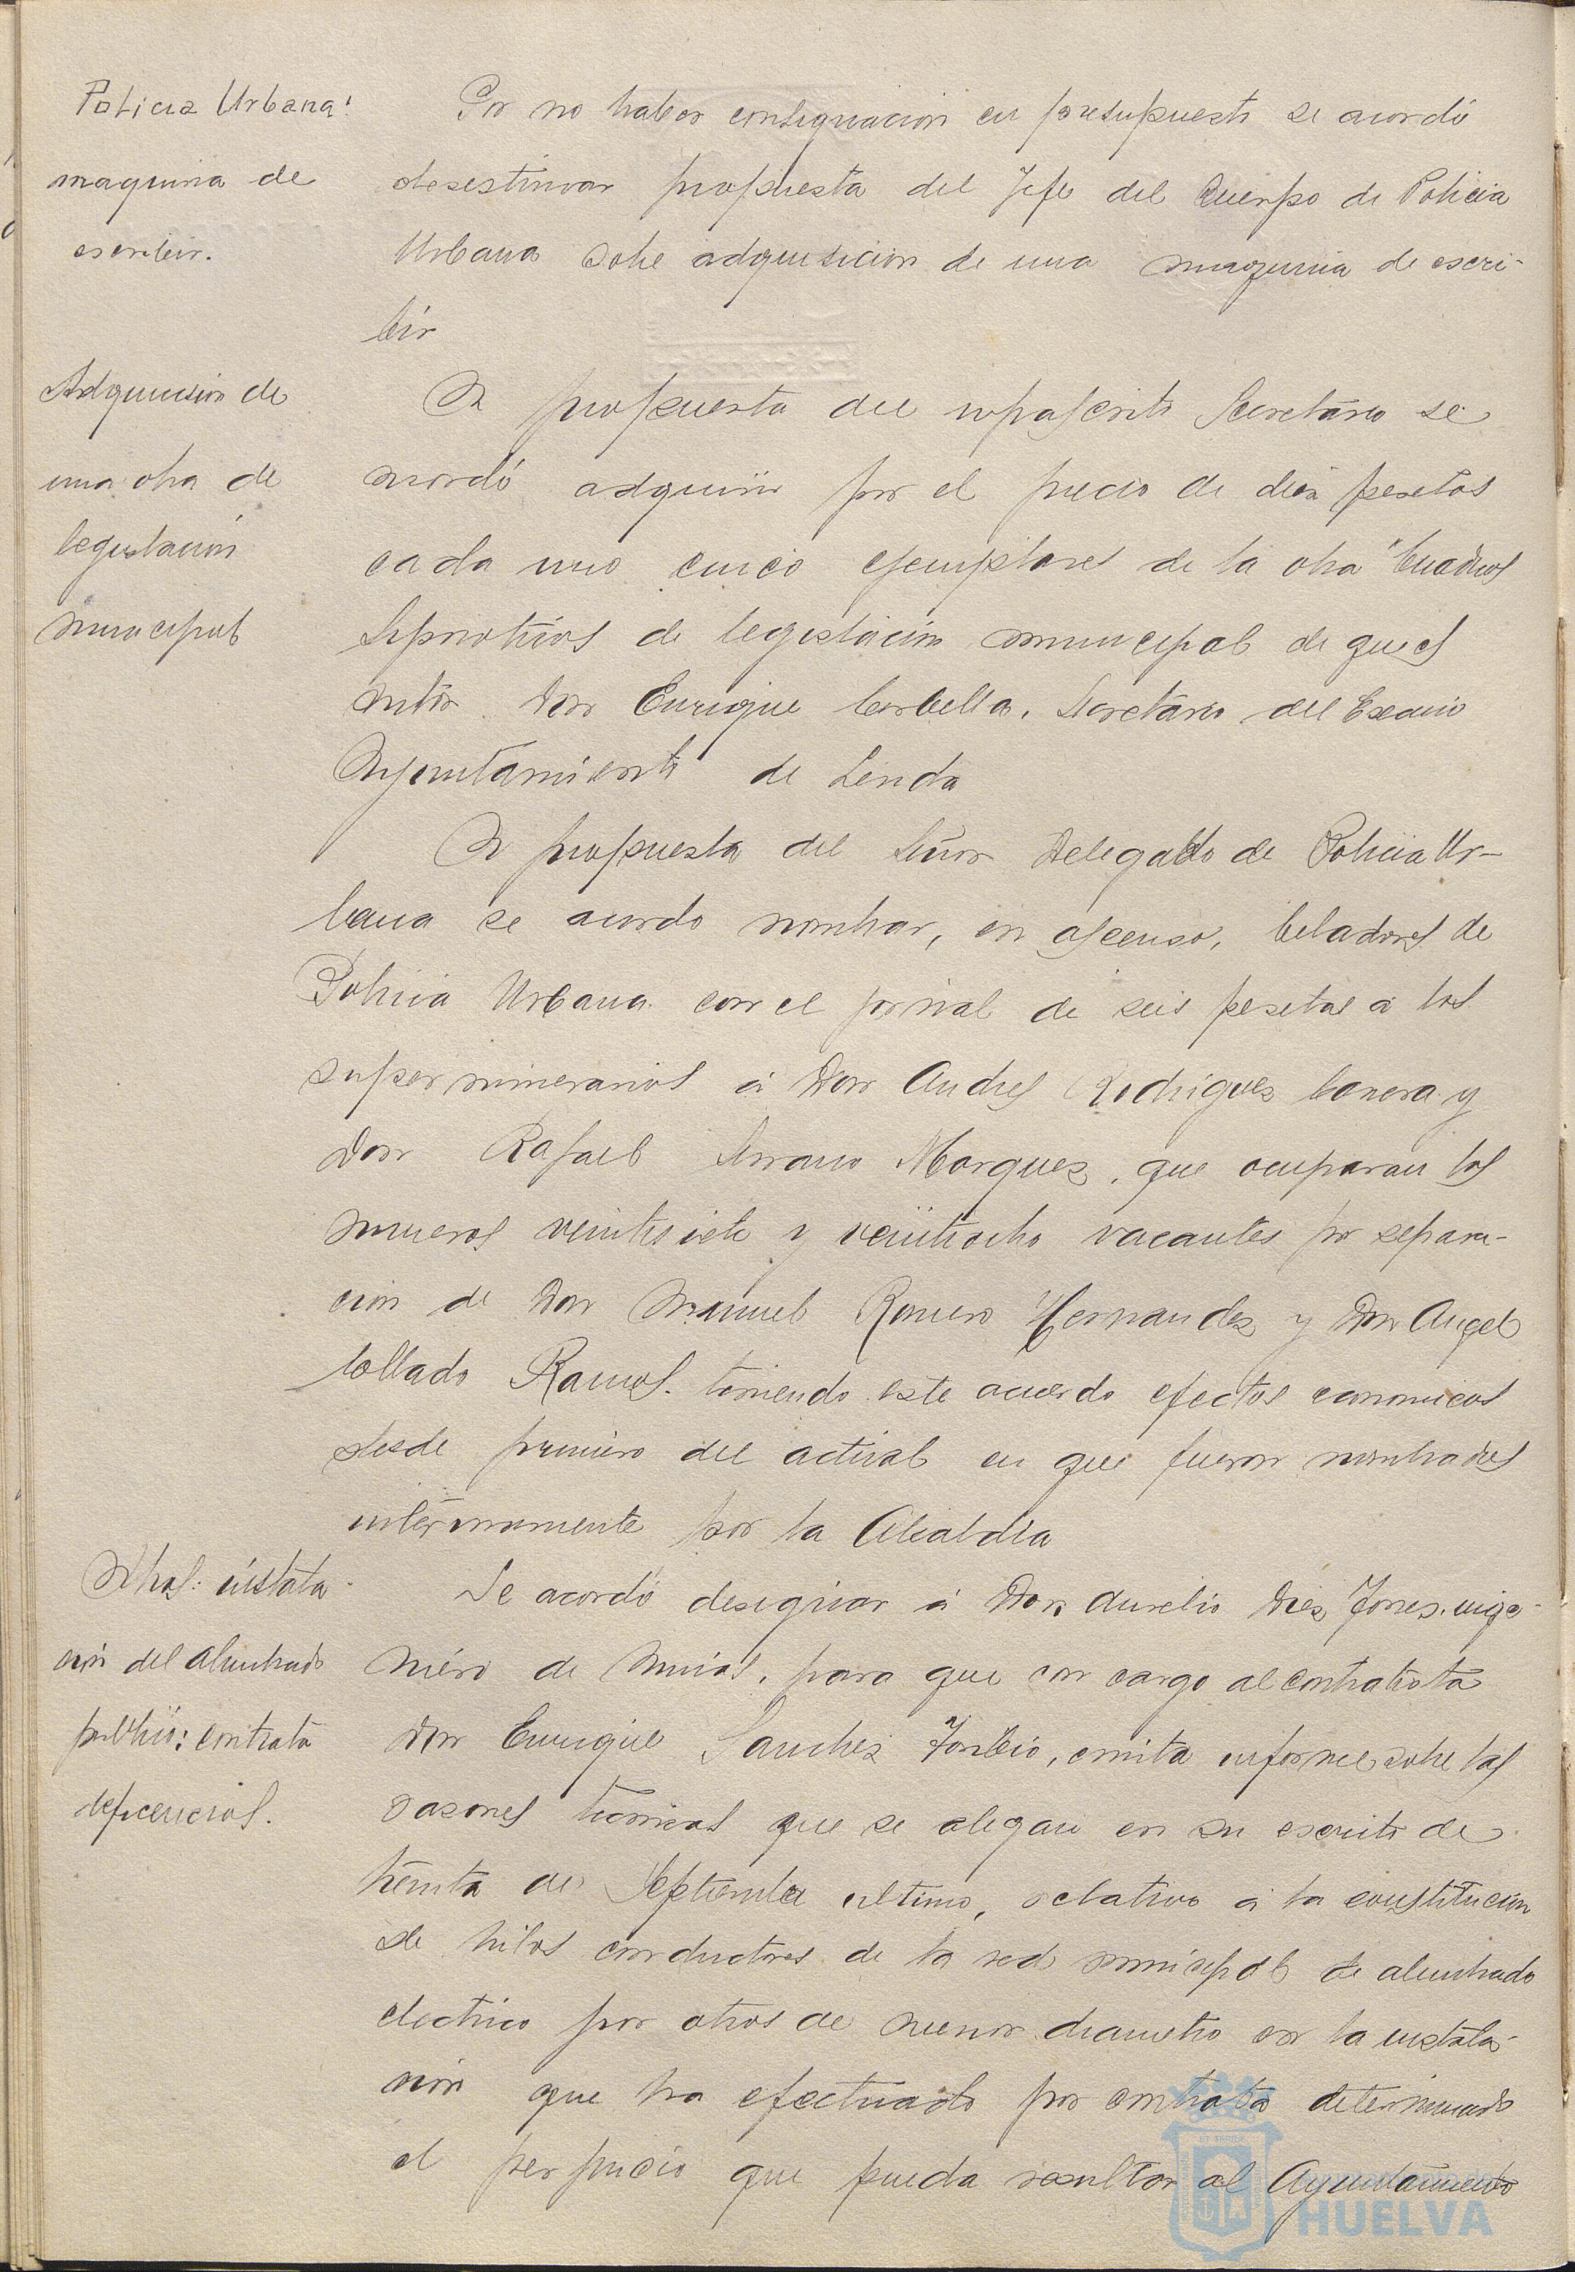 Policia Urbana:
maquina de
escribir.
Por no haber consignación en presupuesto se acordó
desestimar propuesta del Jefe del Cuerpo de Policia
Urbana sobre adquisicion de una maquina de escri-
bir
Adquisicion de
una obra de
legislación
municipal
A propuesta del infrascrito Secretario se
acordó adquirir por el precio de diez pesetas
cada uno cinco ejemplares de la obra "Cuadros
Sinoticos de legislación municipal de que es
autor Don Enrique Corbella, Secretario del Excmo
Ayuntamiento de Lerida
A propuesta del Señor Delegado de Policia Ur-
bana se acordo nombrar, en ascenso, Celadores de
Policia Urbana con el jornal de seis pesetas a los
supernumerarios á Don Andres Rodriguez y
Don Rafael Serrano Marquez, que ocuparan los
numeros veintisiete y veintiocho vacantes por separa-
cion de Don Manuel Romero Hernandez y Don Angel
Collado Ramos. teniendo este acuerdo efectos economicos
desde primero del actual en que fueron nombrados
interinamente por la Alcaldia
Obras: instala-
ción del alumbrado
publico: contrata
deficencias.
Se acordó designar á Don Aurelio Diez Torres, inge-
niero de minas, para que con cargo al contratista
Don Enrique Sanchez Toribio, emita informe sobre las
razones tecnicas que se alegan en su escrito de
treinta de Septiembre ultimo, relativo á la constitución
de hilos conductores de la red municipal de alumbrado
electrico por otros de menor diametro en la instala-
ción que ha efectuado por contrata determinando
el perjuicio que pueda resultar al Ayuntamiento
HUELVA